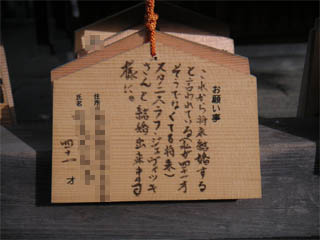 お願い事
これから将来結婚する
と言われている(私女四十一才
そうでなくても将来)
スタニスラフ・ブンジェヴィツキ
さんと結婚出来ます
様に。
住所
氏名
四十一 才